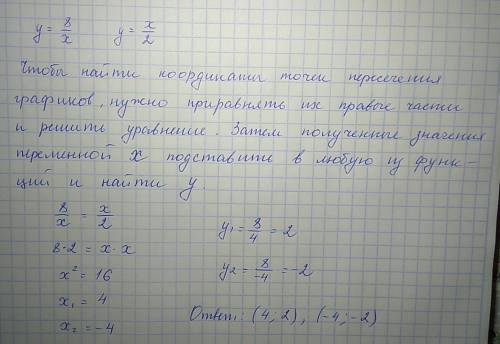 y = 8/x   y = x/2
Чтобы найти координаты точек пересечения
графиков, нужно приравнять их правые части
и решить уравнение. Затем полученные значения
переменной x подставить в любую из функ-
ций и найти y.
8/x = x/2
8·2 = x·x
x² = 16
x₁ = 4
x₂ = -4
y₁ = 8/4 = 2
y₂ = 8/-4 = -2
Ответ: (4; 2), (-4; -2)